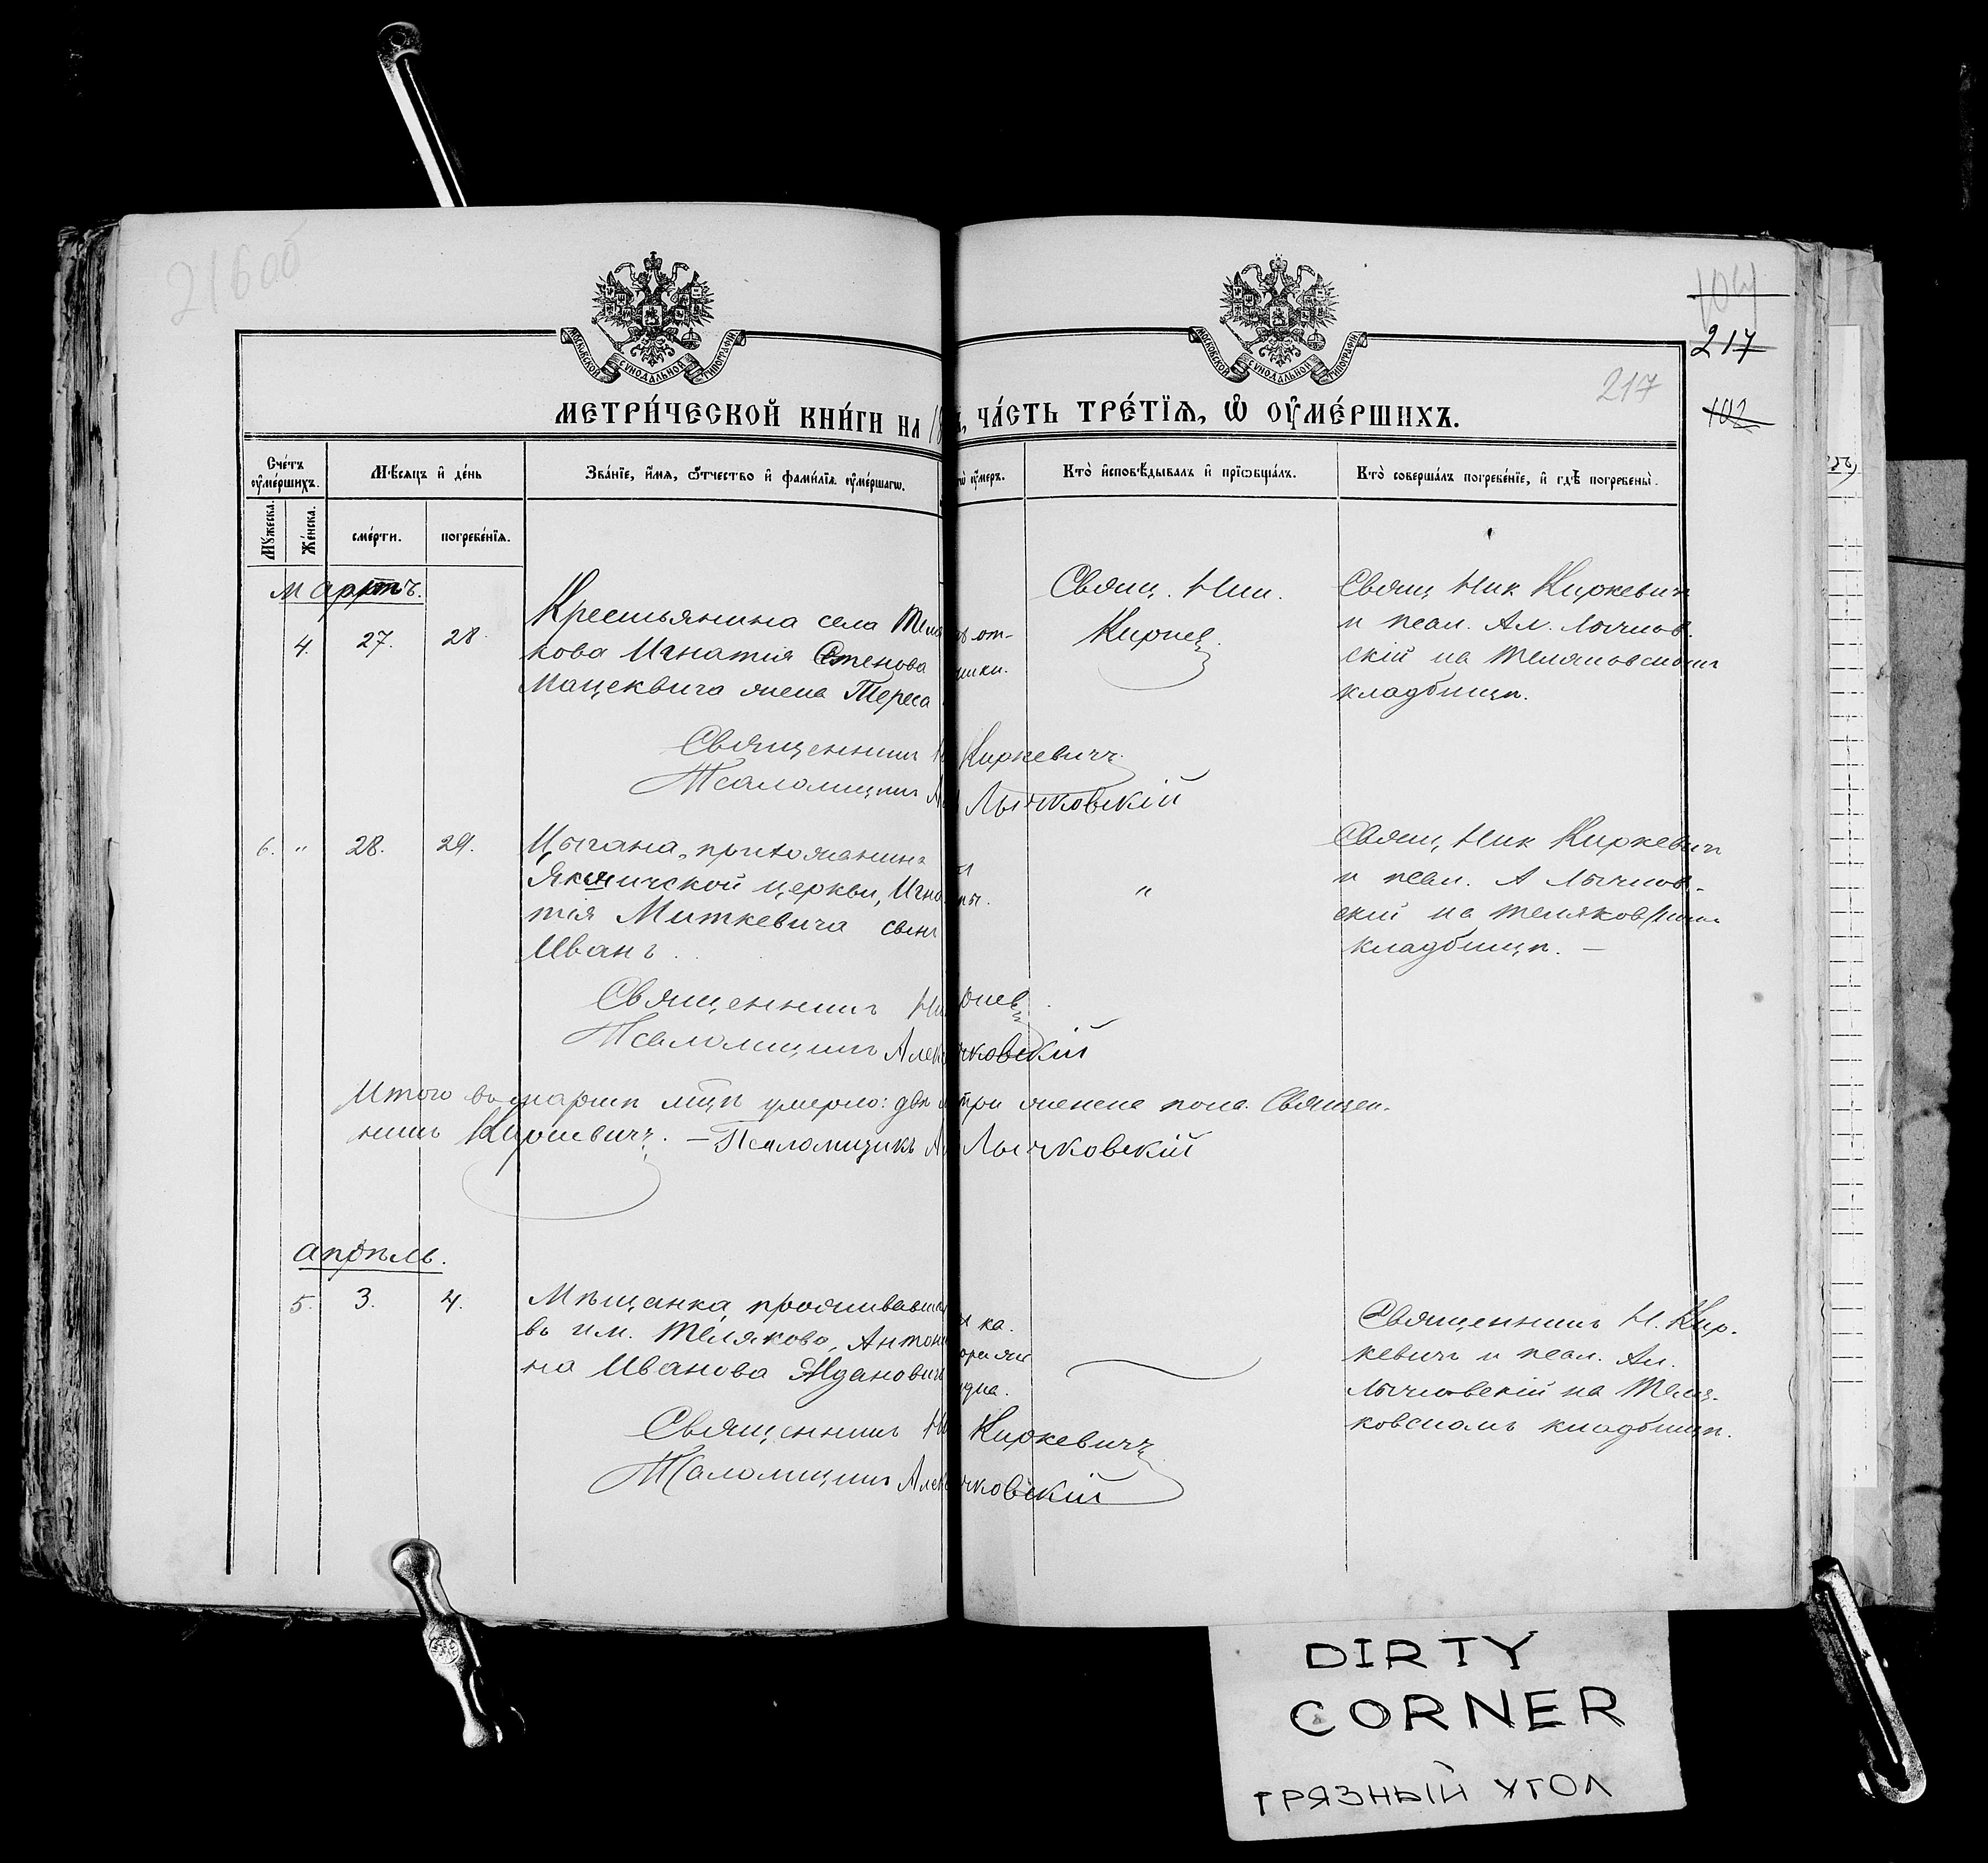 216об
104
217
217
102
МОСКОВСКОЙ СѴНОДАЛЬНОЙ ТИПОГРАФІИ
МОСКОВСКОЙ СѴНОДАЛЬНОЙ ТИПОГРАФІИ
МЕТРИ́ЧЕСКОЙ КНИ́ГИ НА 18
ЧА́СТЬ ТРЕ́ТЇѦ, Ѡ ОУ҆МЕ́РШИХЪ.
Сче́тъ оу҆ме́ршихъ.
Мꙋ́жеска.
Же́нска.
Мѣ́сѧцъ и҆ де́нь
сме́рти.
погребе́нїѧ.
Зва́нїе, и҆́мѧ, ѻ҆́тчество и҆ фами́лїѧ оу҆ме́ршагѡ.
оу҆́меръ.
Кто̀ и҆сповѣ́дывалъ и҆ прїѡбща́лъ.
Кто̀ соверша́лъ погребе́нїе, и҆ гдѣ̀ погребены̀.
Мартъ.
4. 27. 28.
Крестьянина села Теля
кова Игнатія Стенова
Мацеквича жена Тереса
от-
Свящ. Ник.
Киркев.
Свящ Ник Киркевичъ
и псал. Ал. Лычков-
скій на Теляковскомъ
кладбищѣ.
Священникъ Н Киркевичъ.
Псаломщикъ Ал Лычковскій
6. " 28. 29.
Цыгана, прихожанина
Якшичской церкви, Игна
тія Миткевича сынъ
Иванъ.
"
Свящ Ник Киркевичъ
и псал. А Лычков-
скій на теляков
кладбищѣ. –
Священникъ Ни ркев
Псаломщикъ Алек чковскій
Итого въ мартѣ мцѣ умерло: два и три женска пола. Священ-
никъ Киркевичъ. – Псаломщикъ Ал Лычковскій
Апрѣль.
5. 3. 4.
Мѣщанка, проживавшая
въ им. Теляково, Антони
на Иванова Ждановичъ
ка.
Священникъ Н. Кир-
кевичъ и псал. Ал.
Лычковскій на Теля-
ковскомъ кладбищѣ.
Священникъ Н Киркевичъ
Псаломщикъ Алек чковскій
DIRTY
CORNER
ГРЯЗНЫЙ УГОЛ